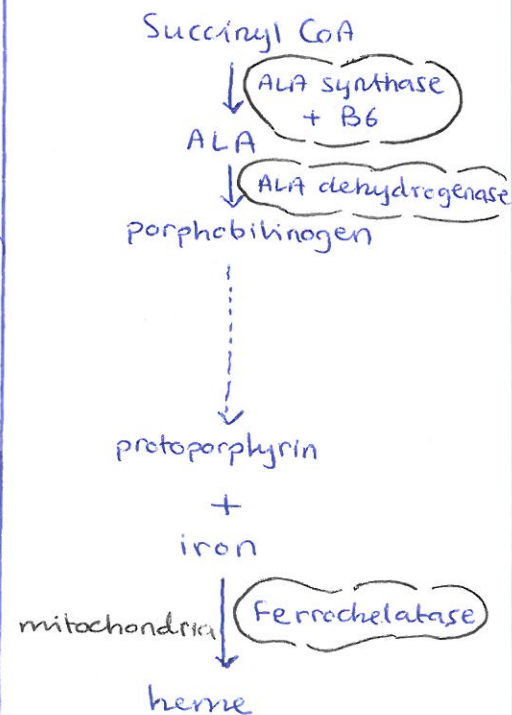 Succinyl CoA
ALA synthase
+ B6
ALA
ALA dehydrogenase
porphobilinogen
protoporphyrin
+
iron
mitochondria
Ferrochelatase
heme